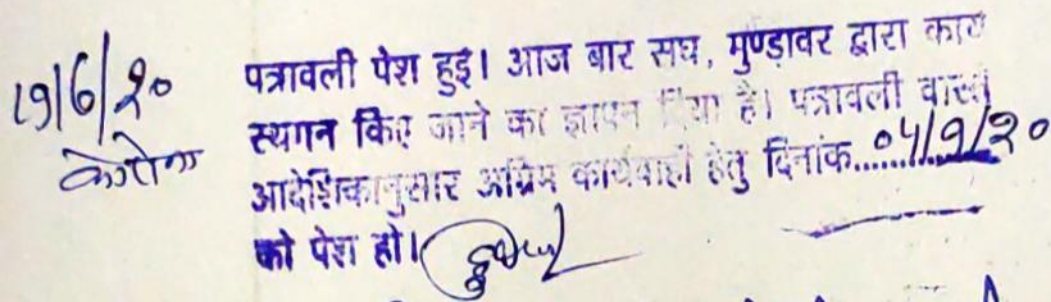 19/6/20
कोरोना
पत्रावली पेश हुई। आज बार संघ, मुण्डावर द्वारा कार्य
स्थगन किए जाने का ज्ञापन दिया है। पत्रावली वास्ते
आदेशिकानुसार अग्रिम कार्यवाही हेतु दिनांक...04/9/20
को पेश हो।